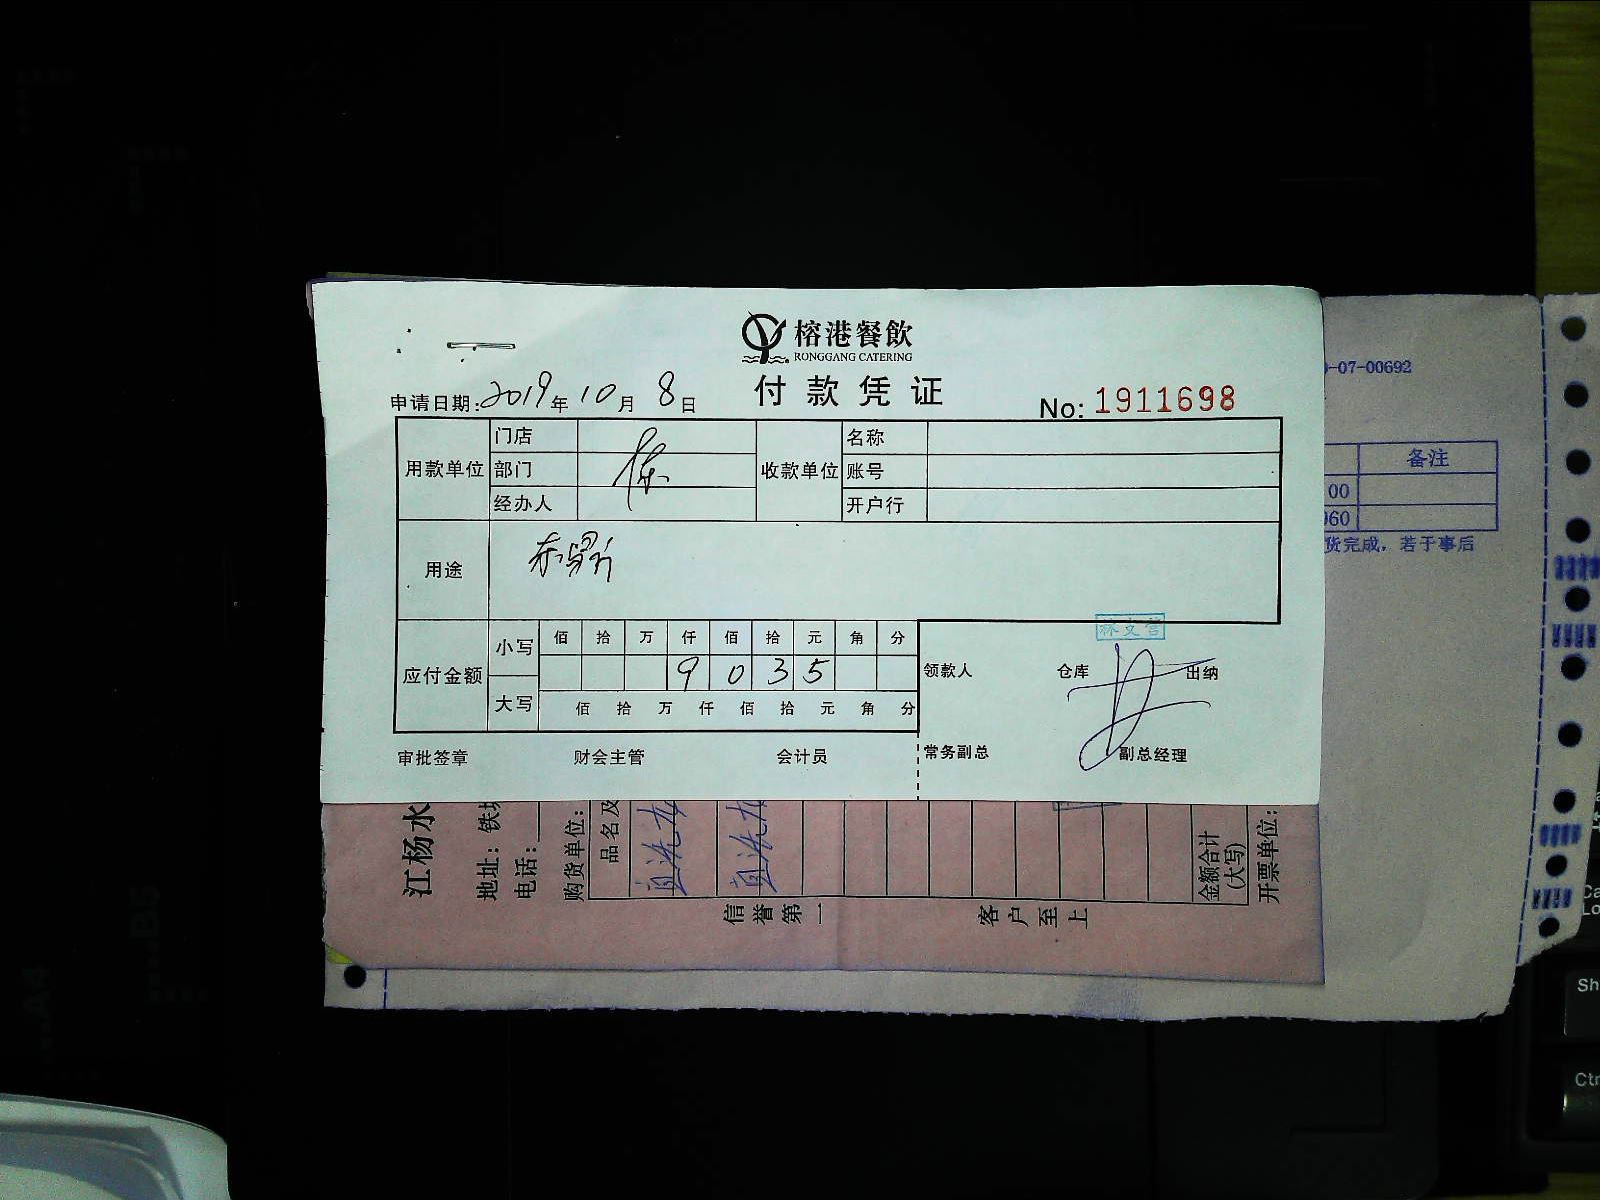 榕港餐飲
RONGGANG CATERING
付款凭证
申请日期:2019年10月8日
No: 1911698
用款单位 门店 收款单位 名称
部门 账号
经办人 开户行
用途
应付金额 小写 佰 拾 万 仟 佰 拾 元 角 分
9 0 3 5
大写 佰 拾 万 仟 佰 拾 元 角 分
领款人 仓库 出纳
审批签章 财会主管 会计员 常务副总 副总经理
-07-00692
备注
00
060
货完成，若于事后
江杨水
地址：铁
电话：
购货单位：
品名及
金额合计
(大写)
开票单位：
信誉第一
客户至上
Sh
Ctr